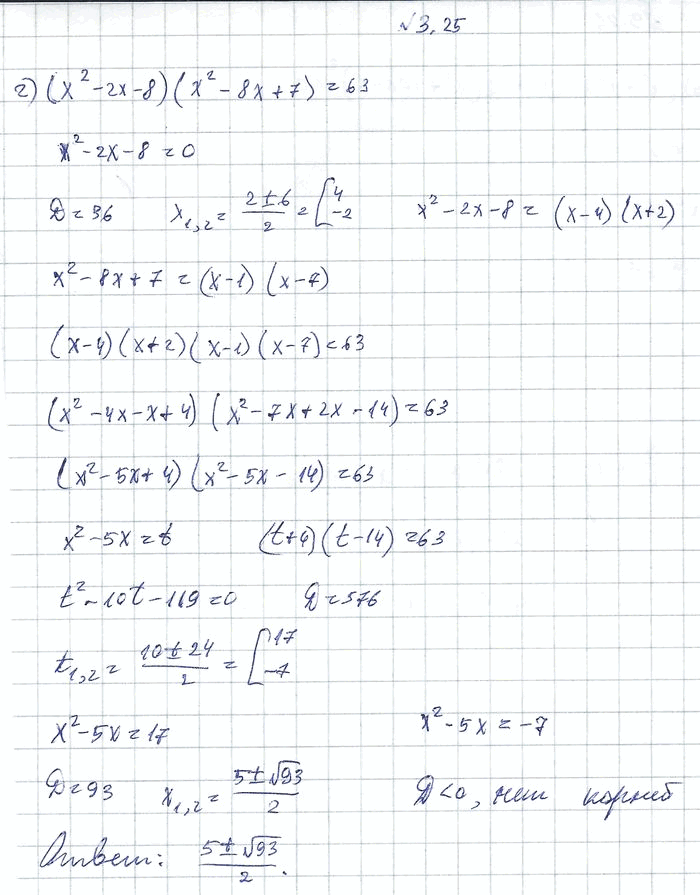 √3,25
г) (x² - 2x - 8)(x² - 8x + 7) = 63
x² - 2x - 8 = 0
D = 36 x₁,₂ = (2 ± 6)/2 = [4 -2 x² - 2x - 8 = (x - 4)(x + 2)
x² - 8x + 7 = (x - 1)(x - 7)
(x - 4)(x + 2)(x - 1)(x - 7) = 63
(x² - 4x - x + 4)(x² - 7x + 2x - 14) = 63
(x² - 5x + 4)(x² - 5x - 14) = 63
x² - 5x = t (t + 4)(t - 14) = 63
t² - 10t - 119 = 0 D = 576
t₁,₂ = (10 ± 24)/2 = [17 -7
x² - 5x = 17 x² - 5x = -7
D = 93 x₁,₂ = (5 ± √93)/2 D < 0, нет корней
Ответ: (5 ± √93)/2.